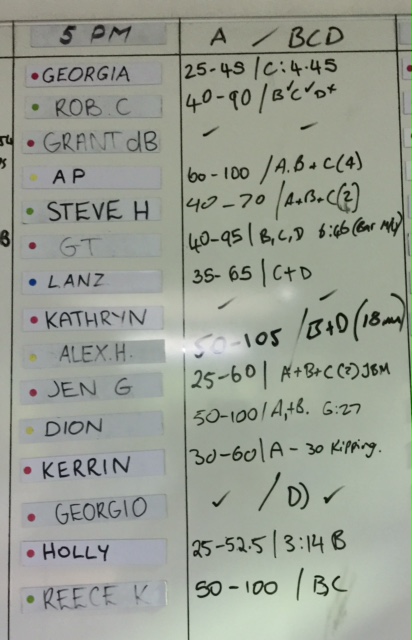 5 PM A / BCD
GEORGIA 25-45 / C: 4.45
ROB. C 40-90 / B✓C✓D×
GRANT dB ✓ ✓
AP 60-100 / A.B + C (4)
STEVE H 40-70 / A+B+C (2)
GT 40-95 | B, C, D 6:46
LANZ 35-65 | C+D
KATHRYN ✓ ✓
ALEX.H. 50-105 / B+D (18 min)
JEN G 25-60 | A+B+C (2) JBM
DION 50-100 / A,+B. 6:27
KERRIN 30-60 | A - 30 Kipping.
GEORGIO ✓ / D) ✓
HOLLY 25-52.5 | 3:14 B
REECE K 50-100 / BC